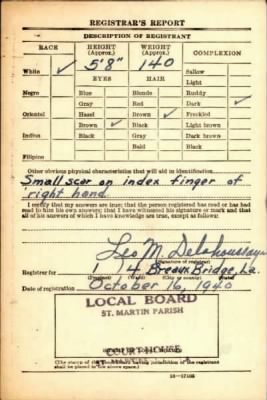 REGISTRAR'S REPORT
DESCRIPTION OF REGISTRANT
RACE HEIGHT (Approx.) WEIGHT (Approx.) COMPLEXION
5'8" 140
White ✓ Sallow
EYES HAIR Light
Negro Blue Blonde Ruddy
Gray Red Dark ✓
Oriental Hazel Brown ✓ Freckled
Brown ✓ Black Light brown
Indian Black Gray Dark brown
Bald Black
Filipino
Other obvious physical characteristics that will aid in identification
Small scar on index finger of
right hand
I certify that my answers are true; that the person registered has read or has had
read to him his own answers; that I have witnessed his signature or mark and that
all of his answers of which I have knowledge are true, except as follows:
Leo M. Delahoussaye
(Signature of registrar)
Registrar for 1 4 Breaux Bridge, La.
Date of registration October 16, 1940
LOCAL BOARD
ST. MARTIN PARISH
COURTHOUSE
(The stamp of the Local Board having jurisdiction of the registrant
shall be placed in the above space.)